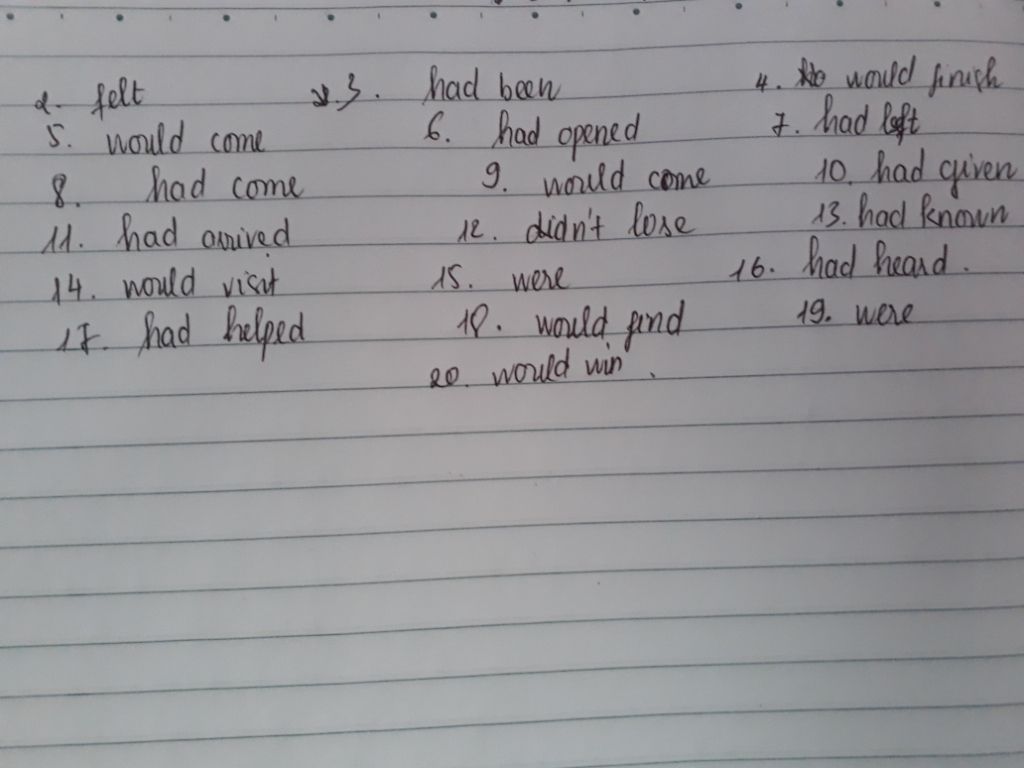 2. felt 3. had been 4. would finish
5. would come 6. had opened 7. had left
8. had come 9. would come 10. had given
11. had arrived 12. didn't lose 13. had known
14. would visit 15. were 16. had heard.
17. had helped 18. would find 19. were
20. would win.